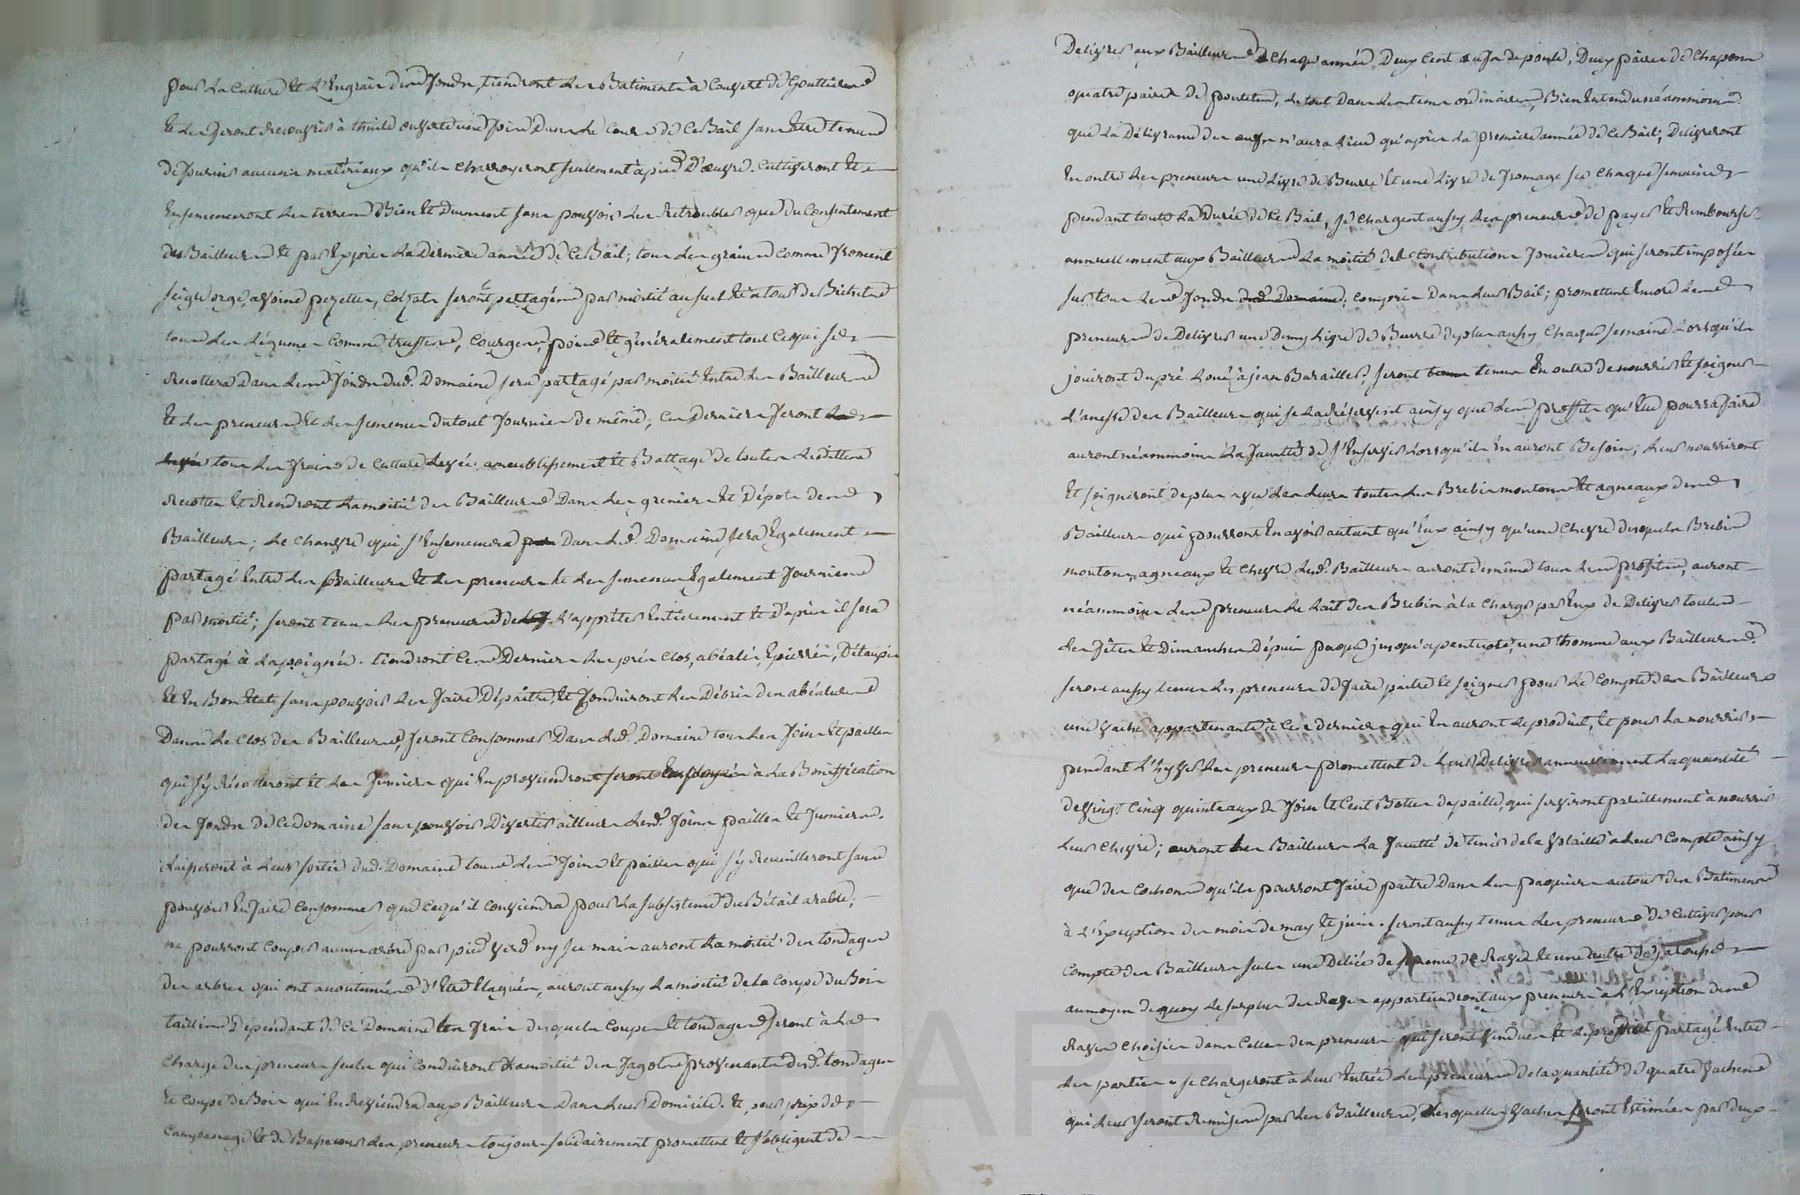 pour La Culture et L'Engrais desd. fonds, tiendront Les Batiments à Couvert de Gouttieres
Et Les feront Recouvrir à thuile ouverte une fois Dans Le Cours de Ce Bail sans Etre tenus
de fournir aucuns matériaux qu'ils Charroyeront seulement à pied D'œuvre. Cultiveront Et
Ensemenceront Les terres Bien Et Duement sans pouvoir Les Retroubler que du Consentement
des Bailleurs Et pas Exprès La Derniere année de Ce Bail; tous Les grains Comme froment
seigle orge, avoine pezettes, Colzats seront partagés par moitié au suel Et à tour de Bichet
tous Les Légumes Comme truffes, Courges, pois Et généralement tout Ce qui se
Recoltera Dans Lesd. fonds dud. Domaine sera partagé par moitié Entre Les Bailleurs
Et Les preneurs Et Les semences du tout fournies de même, Ces Derniers feront
tous Les frais de Culture Levée, ameublissement Et Battage de toutes Lesdittes
Recoltes Et Rendront La moitié des Bailleurs Dans Les greniers Et Dépots desd.
Bailleurs; Le Chanvre qui s'Ensemencera Dans Led. Domaine sera Egalement
partagé Entre Les Bailleurs Et Les preneurs Et Les semences Egalement fournies
par moitié; seront tenus Les preneurs de L'appreter Entierement Et D'après il sera
partagé à La poignée. tiendront Ces Derniers Les prés Clos, abéalés, Epierrés, Détaupés
Et En Bon Etat sans pouvoir Les faire Dépaitre, Et Conduiront Les Débris des abéalures
Dans Le Clos des Bailleurs, feront Consommer Dans Led. Domaine tous Les foins Et pailles
qui s'y Récolteront Et Les fumiers qui En proviendront seront Employés à La Bonification
des fonds de Ce domaine sans pouvoir Divertir ailleurs Lesd. foins pailles Et fumiers.
Laisseront à Leur sortie dud. Domaine tous Les foins Et pailles qui s'y Recueilleront sans
pouvoir En faire Consommer que Ce qu'il Conviendra pour La subsistence du Bétail arable;
ne pourront Couper aucun arbre par pied vif ny sec mais auront La moitié des tondages
des arbres qui ont accoutumés d'Etre Elagués, auront aussy La moitié de La Coupe du Bois
taillis Dépendant de Ce Domaine Les frais desquels Coupes Et tondages seront à La
Charge des preneurs seuls qui Conduiront La moitié des fagots provenants desd. tondages
Et Coupe de Bois qui En Reviendra aux Bailleurs Dans Leur Domicile. Et pour prix de
Et de Basse cour Les preneurs toujours solidairement promettent Et s'obligent de
Delivrer aux Bailleurs Chaque année Deux Cent œufs de poule, Deux paires de Chapons
quatre paires de poulets, Le tout Dans Les tems ordinaires, Bien Entendu néammoins
que La Délivrance des œufs n'aura Lieu qu'après La premiere année de Ce Bail; Delivreront
En outre Les preneurs une Livre de Beurre Et une Livre de fromage sec Chaque semaine
pendant toute La Durée de Ce Bail, se Chargent aussy Les preneurs de payer Et Rembourser
annuellement aux Bailleurs La moitié des Contributions foncieres qui seront imposées
sur tous Lesd. fonds dud. Domaine, Compris Dans Leur Bail; promettent Encore Lesd.
preneurs de Delivrer une Demy Livre de Beurre de plus aussy Chaque semaine Lorsqu'ils
jouiront du pré Loué à jean Barailler. seront tenus En outre de nourrir Et soigner
L'anesse des Bailleurs qui se La réservent ainsy que Les proffits qu'Elle pourra faire
auront néammoins La faculté de s'En servir Lorsqu'ils En auront Besoin; Leur nourriront
Et soigneront de plus avec Les Leurs toutes Les Brebis moutons Et agneaux desd.
Bailleurs qui pourront En avoir autant qu'Eux ainsy qu'une Chevre desquels Brebis
moutons, agneaux Et Chevre Lesd. Bailleurs auront de même tous Les profits, auront
néammoins Lesd. preneurs Le Lait des Brebis à La Charge par Eux de Delivrer toutes
Les fêtes Et Dimanches Dépuis paque jusqu'a pentecote, une thomme aux Bailleurs.
seront aussy tenus Les preneurs de faire paitre Et soigner pour Le Compte des Bailleurs
une vache appartenante à Ces derniers qui En auront Le produit, Et pour La nourrir
pendant L'hyver Les preneurs promettent de Leur Delivrer annuellement La quantité
de vingt Cinq quinteaux de foin Et Cent Bottes de paille, qui serviront pareillement à nourrir
Leur Chevre; auront Les Bailleurs La faculté de tenir de la volaille à Leur Compte ainsy
que des Cochons qu'ils pourront faire paitre Dans Les paquiers autour des Batiments
à L'Exception des mois de may Et juin. seront aussy tenus Les preneurs de Cultiver pour
Compte des Bailleurs seuls une de Raves Et une autre de
au moyen de quoy Le surplus des Raves appartiendront aux preneurs à L'Exception desd.
Raves Choisies dans Celles des preneurs qui seront vendues Et Le profit partagé Entre
Les parties. se Chargeront à Leur Entrée Les preneurs de La quantité de quatre vaches
qui Leur seront Remises par Les Bailleurs, Lesquelles vaches seront Estimées par deux